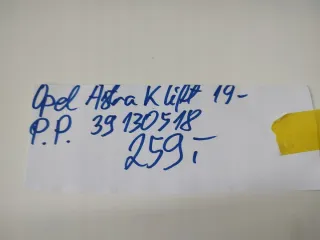 Opel Astra K lift 19-
P.P. 39130518
259,-